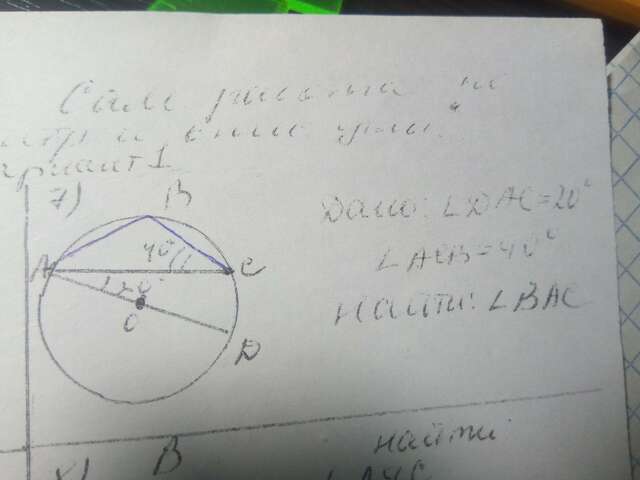 Сам. работа
Вариант 1
7)
B
A
40°
C
20°
O
D
Дано: ∠DAC=20°
∠ACB=40°
Найти: ∠BAC
B
найти